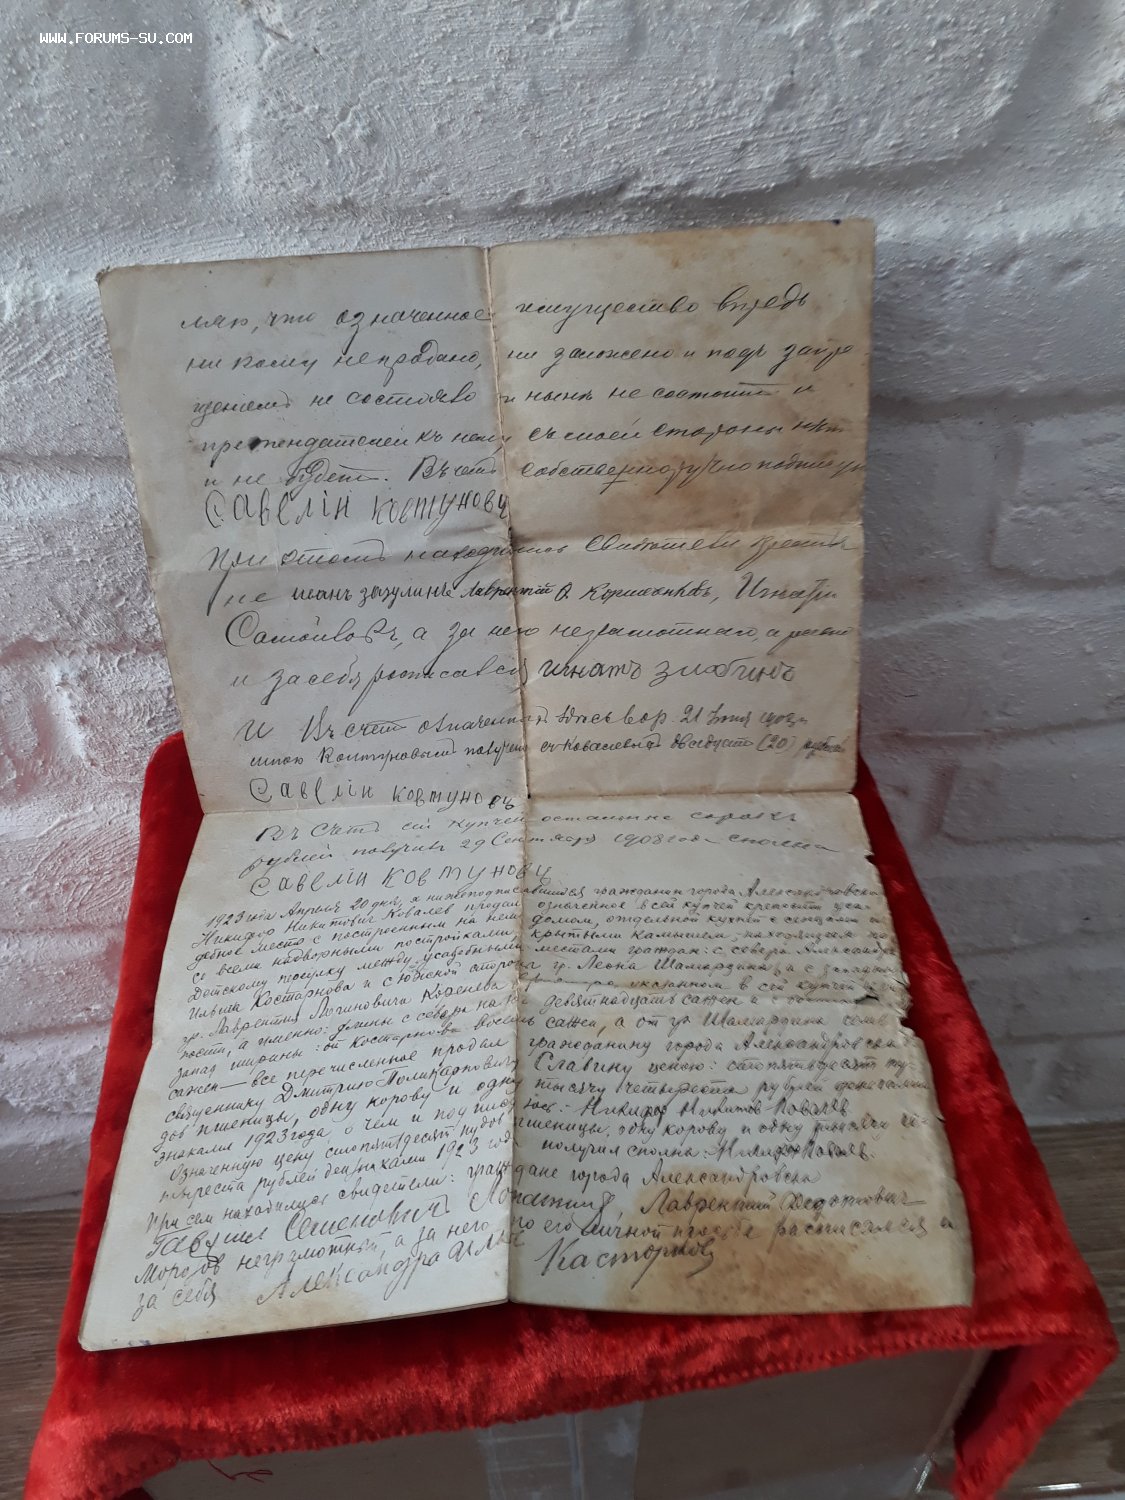 WWW.FORUMS-SU.COM
ляю, что означенное имущество впредь
ни кому не продано, ни заложено и подъ запре
щеніемъ не состояво и нынѣ не состоитъ и
претендателей къ нему съ моей стороны нѣт
и не будетъ. Въ чемъ собственноручно подпису
Савелій Ковтуновъ
При этомъ находились свидетели крестья
не Иванъ Зазулинъ Лаврентій О. Игнатъ
а за него неграмотнаго, а равно
и за себя росписавсь Игнатъ Зюбинъ
И Въ счетъ означенной 21 1908 г
мною Ковтуновымъ получено съ Ковалевыхъ двадцать (20) рублей
Савелій Ковтуновъ
Въ счетъ сей купчей остальные сорокъ
рублей получивъ 29 Сентября 1908 года сполна
Савелій Ковтуновъ
1923 года Апреля 20 дня, я нижеподписавшийся гражданин города Александровска
Никифор Никитович Ковалев продал означенное в сей купчей крепости уса-
дебное место с построенным на нем домом, отдельной кухней с
со всеми надворными постройками, крытыми камышем, находящееся по
Детскому переулку между усадебными местами граждан: с севера Александра
Ильича Костарнова и с южной стороны гр. Леона Шамардина, а с запада
гр. Лаврентия Логиновича указанном в сей купчей
пости, а именно: длины с севера на девятнадцать сажен и с
запад ширины: от Костарнова восемь сажен, а от гр. Шамардина семь
сажен — все перечисленное продал гражданину города Александровска
священнику Дмитрию Поликарповичу Славину ценою: стопятьдесят пу-
дов пшеницы, одну корову и одну тысячу четыреста рублей денежными
знаками 1923 года, о чем и подписуюсь: Никифор Никитов Ковалев
Означенную цену стопятьдесят пудов пшеницы, одну корову и одну тысячу че-
тыреста рублей дензнаками 1923 года получил сполна: Никифор Ковалев.
При сем находились свидетели: граждане города Александровска
Семенович Лаврентий Федотович
Морозов неграмотный, а за него по его личной просьбе расписался и
за себя Александра Ильич